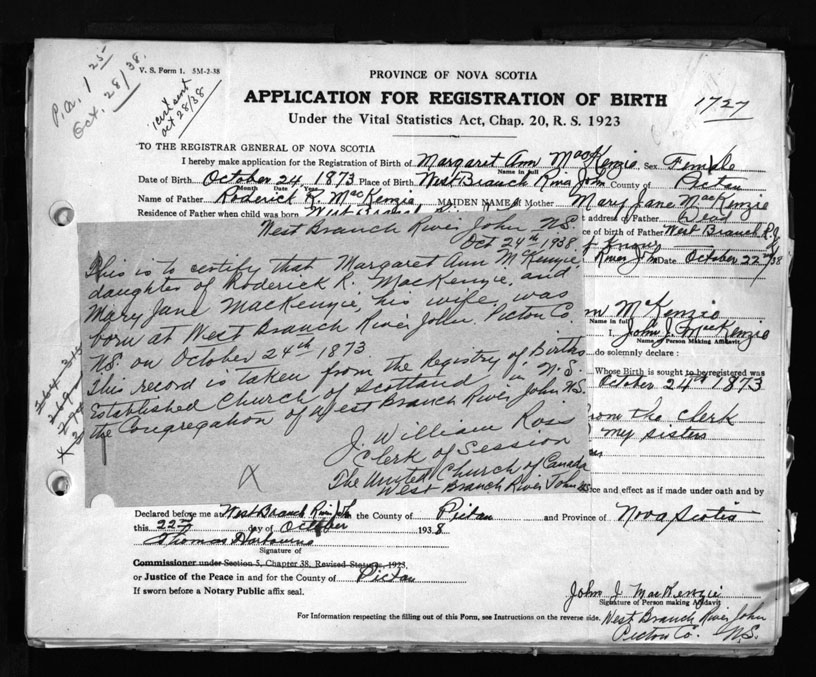 P.a. 1 25
Oct. 28/38.
V. S. Form 1. 5M-2-38
sent
oct 28/38
PROVINCE OF NOVA SCOTIA
APPLICATION FOR REGISTRATION OF BIRTH
1727
Under the Vital Statistics Act, Chap. 20, R. S. 1923
TO THE REGISTRAR GENERAL OF NOVA SCOTIA
I hereby make application for the Registration of Birth of Margaret Ann MacKenzie Sex Female
Name in full
Date of Birth October 24 1873 Place of Birth West Branch River John County of Pictou
Month Date Year
Name of Father Roderick K. MacKenzie MAIDEN NAME of Mother Mary Jane MacKenzie
Residence of Father when child was born West Branch
address of Father Dead
of Father West Branch R. J.
River John Date October 22nd/38
West Branch River John N.S.
Oct 24th 1938
This is to certify that Margaret Ann McKenzie
daughter of Roderick K. MacKenzie, and
Mary Jane MacKenzie, his wife, was
born at West Branch River John. Picton Co.
N.S. on October 24th 1873
This record is taken from the Registry of Births
Established Church of Scotland in N.S.
the Congregation of West Branch River John N.S.
J. William Ross
Clerk of Session
The United Church of Canada
West Branch River John N.S.
X
McKenzie
Name in full
I, John J. MacKenzie
Name of Person Making Affidavit
do solemnly declare :
Whose Birth is sought to be registered was
October 24th 1873
from the clerk
my sisters
force and effect as if made under oath and by
Declared before me at West Branch River John in the County of Pictou and Province of Nova Scotia
this 22nd day of October 1938
Thomas
Signature of
Commissioner under Section 5, Chapter 38, Revised Statutes, 1923,
or Justice of the Peace in and for the County of Pictou
If sworn before a Notary Public affix seal.
John J MacKenzie
Signature of Person making Affidavit
For Information respecting the filling out of this Form, see Instructions on the reverse side.
West Branch River John
Picton Co. N.S.